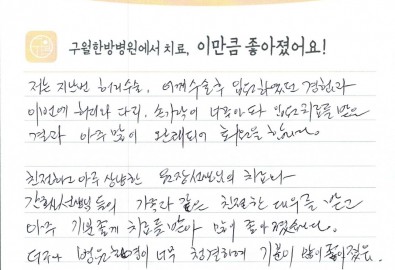 구월한방병원에서 치료, 이만큼 좋아졌어요!
저는 지난번 허리수술, 어깨수술후 입원하였던 경험과
이번에 허리와 다리, 손가락이 너무아파 입원치료를 받은
결과 아주 많이 완쾌되어 퇴원을 합니다.
친절하고 아주 상냥한 원장선생님의 치료나
간호사선생님 들의 가족과 같은 친절한 대우를 받고
아주 기분좋게 치료를 받아 많이 좋아졌습니다.
더구나 병원환경이 너무 청결하여 기분이 많이 좋아졌음.